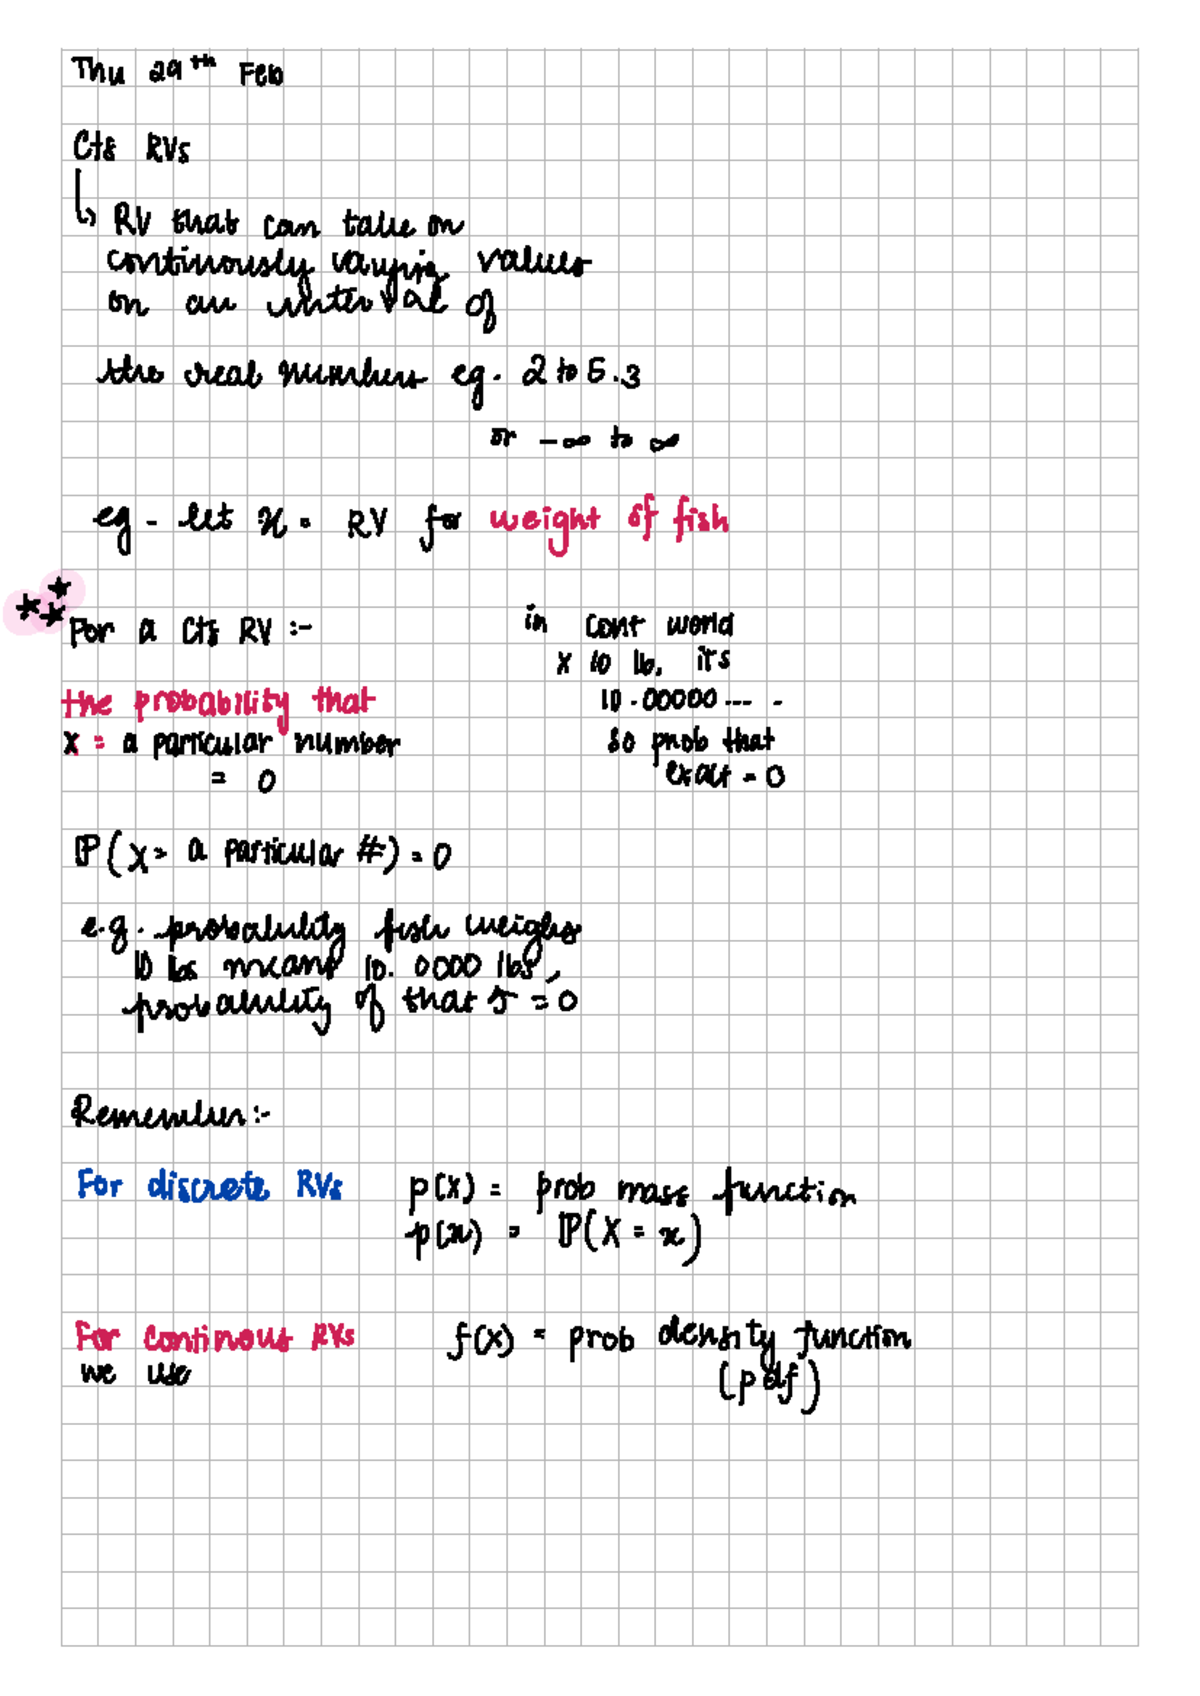 Thu 29th Feb
Cts RVs
↳ RV that can take on
continuously varying values
on an interval of
the real numbers eg. 2 to 5.3
or -∞ to ∞
eg - let x = RV for weight of fish
For a Cts RV :-
the probability that
X = a particular number
= 0
in cont world
X 10 lb, its
10.00000--- -
so prob that
exact = 0
ℙ(X = a particular #) = 0
e.g. probability fish weighs
10 lbs means 10.0000 lbs,
probability of that = 0
Remember:-
For discrete RVs p(x) = prob mass function
p(x) = ℙ(X = x)
For continous RVs f(x) = prob density function
we use (pdf)